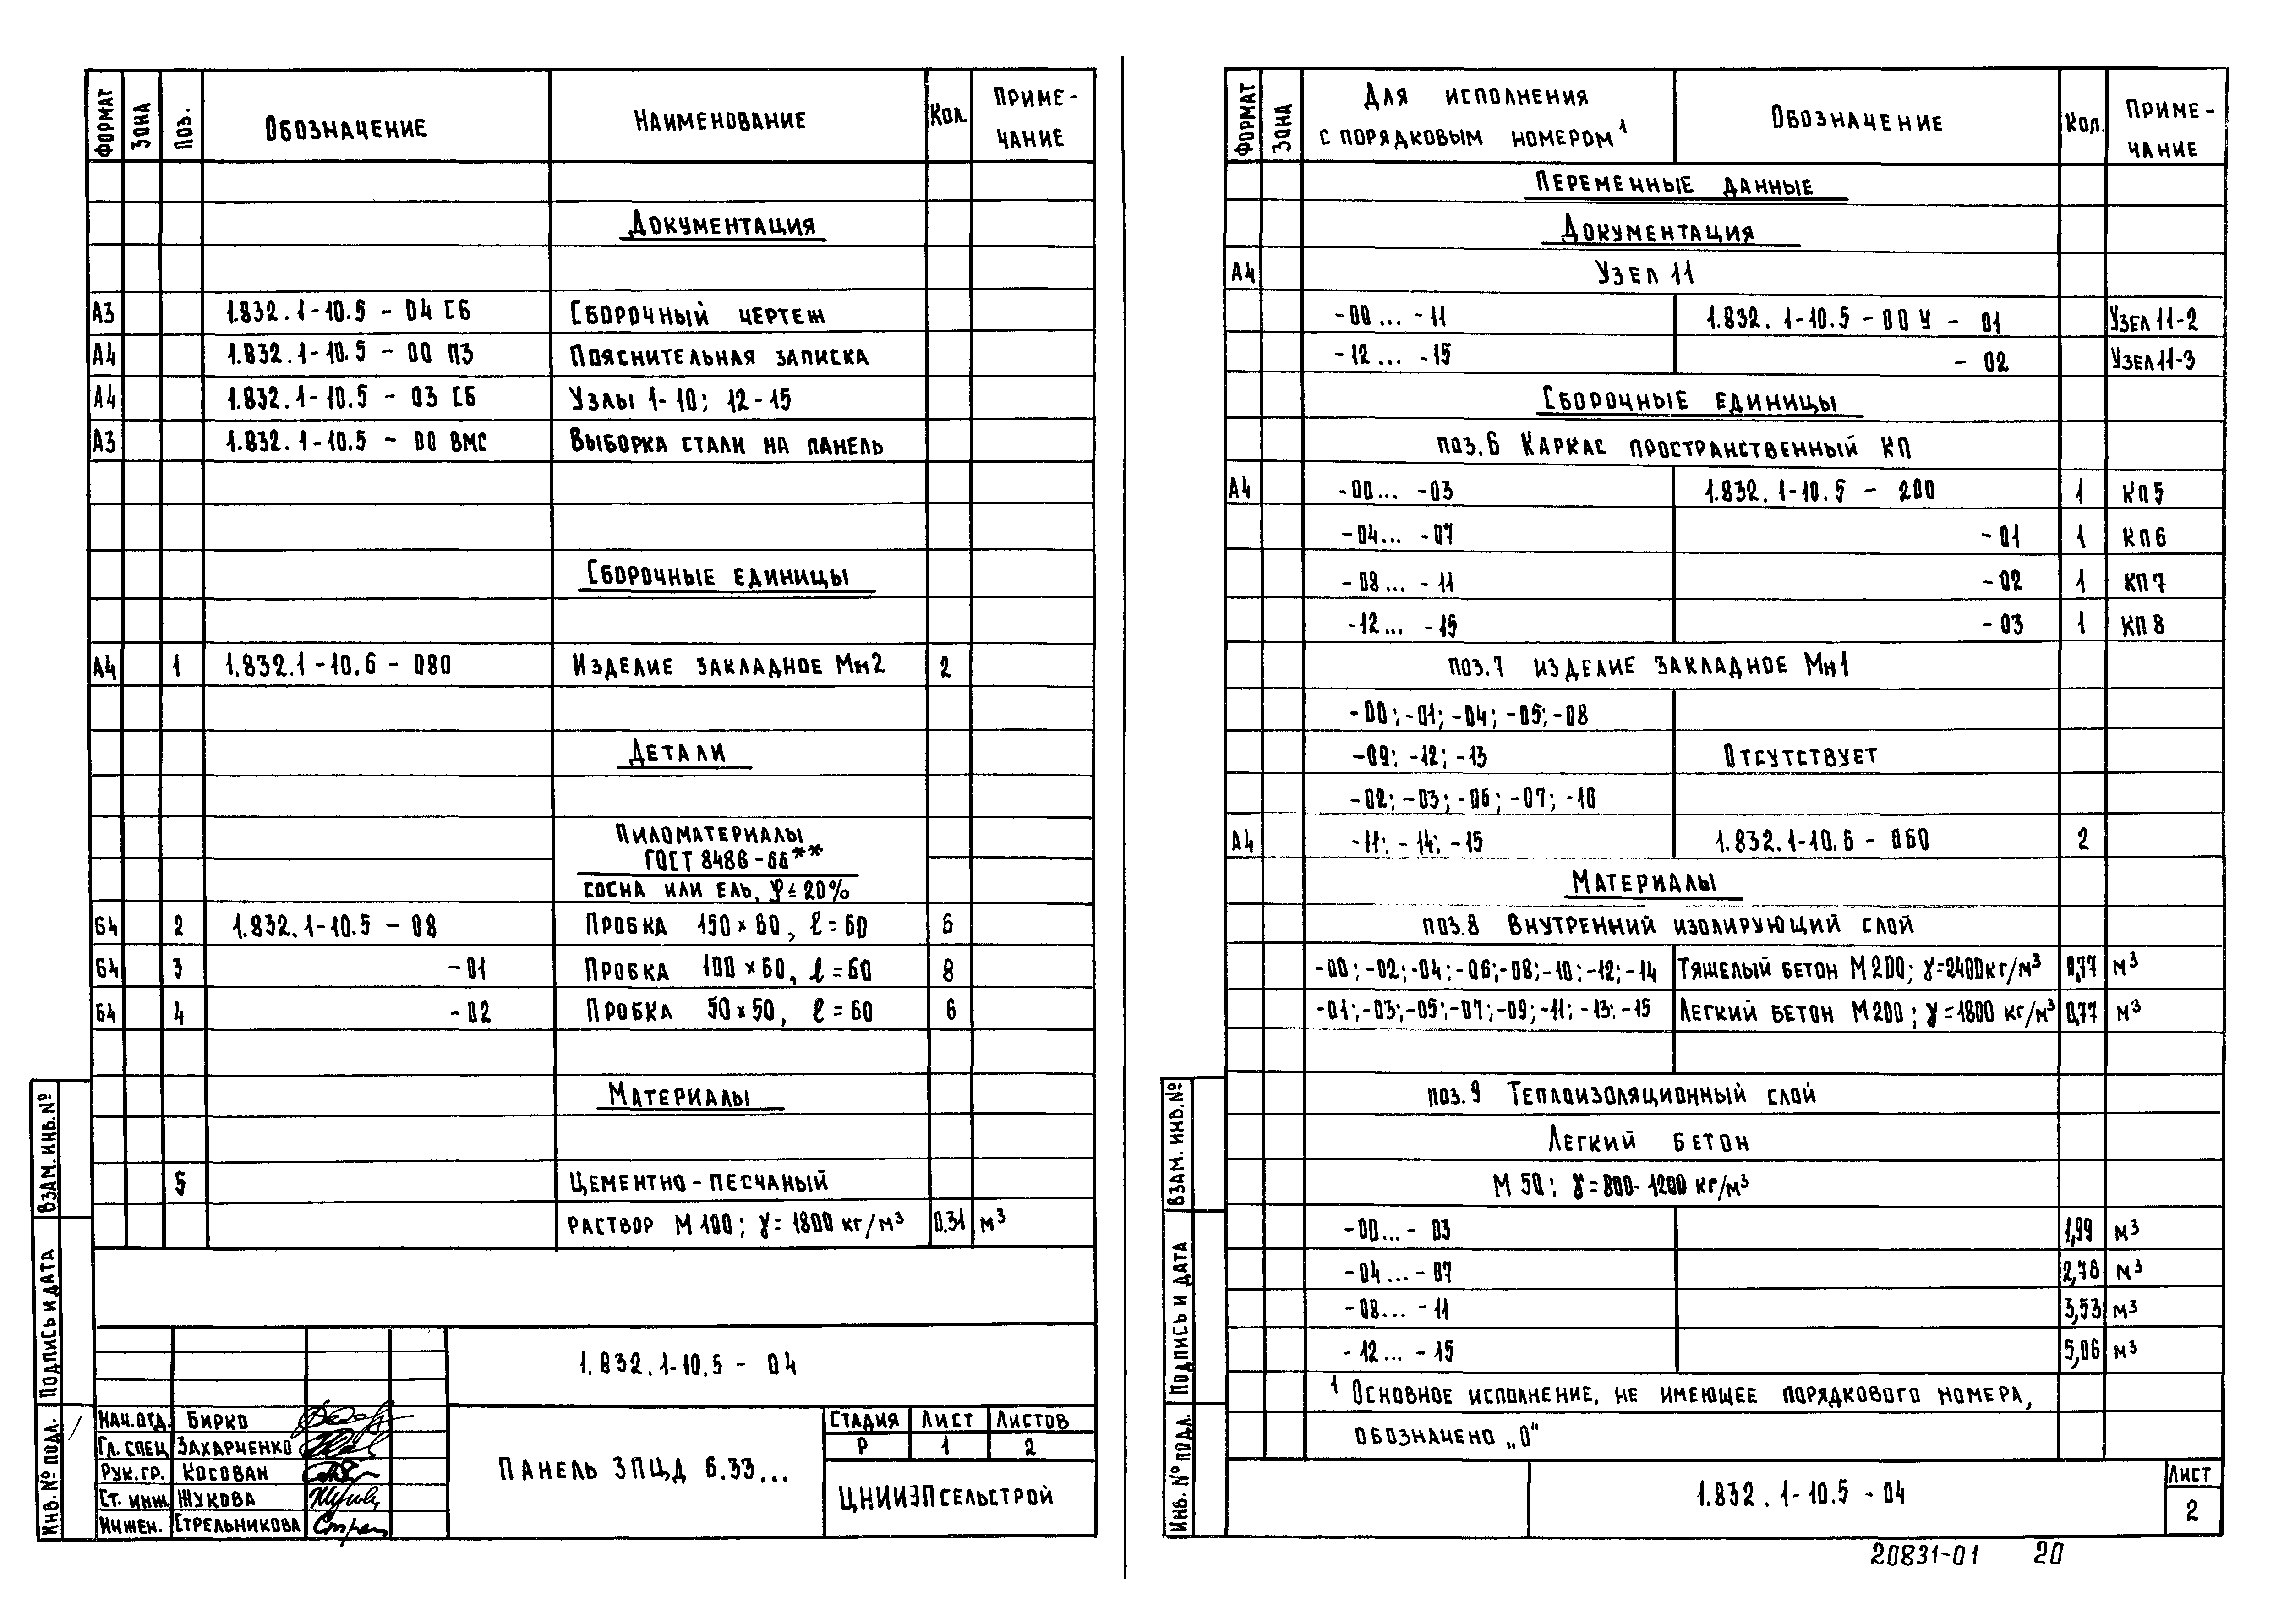 ФОРМАТ ЗОНА ПОЗ. ОБОЗНАЧЕНИЕ НАИМЕНОВАНИЕ КОЛ. ПРИМЕ-
ЧАНИЕ
ДОКУМЕНТАЦИЯ
А3 1.832.1-10.5 - 04 СБ СБОРОЧНЫЙ ЧЕРТЕЖ
А4 1.832.1-10.5 - 00 ПЗ ПОЯСНИТЕЛЬНАЯ ЗАПИСКА
А4 1.832.1-10.5 - 03 СБ УЗЛЫ 1-10; 12-15
А3 1.832.1-10.5 - 00 ВМС ВЫБОРКА СТАЛИ НА ПАНЕЛЬ
СБОРОЧНЫЕ ЕДИНИЦЫ
А4 1 1.832.1-10.6 - 080 ИЗДЕЛИЕ ЗАКЛАДНОЕ Мн2 2
ДЕТАЛИ
ПИЛОМАТЕРИАЛЫ
ГОСТ 8486-66**
СОСНА ИЛИ ЕЛЬ, φ≤20%
Б4 2 1.832.1-10.5 - 08 ПРОБКА 150×60, ℓ=60 6
Б4 3 -01 ПРОБКА 100×60, ℓ=60 8
Б4 4 -02 ПРОБКА 50×50, ℓ=60 6
МАТЕРИАЛЫ
5 ЦЕМЕНТНО-ПЕСЧАНЫЙ
РАСТВОР М 100; γ=1800 кг/м³ 0.31 м³
1.832.1-10.5 - 04
НАЧ.ОТД. БИРКО
ГЛ. СПЕЦ ЗАХАРЧЕНКО
РУК.ГР. КОСОВАН
СТ. ИНЖ. ЖУКОВА
ИНЖЕН. СТРЕЛЬНИКОВА
ПАНЕЛЬ ЗПЦД 6.33...
СТАДИЯ ЛИСТ ЛИСТОВ
Р 1 2
ЦНИИЭПСЕЛЬСТРОЙ
ВЗАМ. ИНВ.№
ПОДПИСЬ И ДАТА
ИНВ.№ ПОДЛ.
ФОРМАТ ЗОНА ДЛЯ ИСПОЛНЕНИЯ
С ПОРЯДКОВЫМ НОМЕРОМ¹ ОБОЗНАЧЕНИЕ КОЛ. ПРИМЕ-
ЧАНИЕ
ПЕРЕМЕННЫЕ ДАННЫЕ
ДОКУМЕНТАЦИЯ
А4 УЗЕЛ 11
-00... -11 1.832.1-10.5 - 00 У - 01 УЗЕЛ 11-2
-12... -15 - 02 УЗЕЛ 11-3
СБОРОЧНЫЕ ЕДИНИЦЫ
ПОЗ.6 КАРКАС ПРОСТРАНСТВЕННЫЙ КП
А4 -00... -03 1.832.1-10.5 - 200 1 КП5
-04... -07 -01 1 КП6
-08... -11 -02 1 КП7
-12... -15 -03 1 КП8
ПОЗ.7 ИЗДЕЛИЕ ЗАКЛАДНОЕ Мн1
-00; -01; -04; -05; -08
-09; -12; -13 ОТСУТСТВУЕТ
-02; -03; -06; -07; -10
А4 -11; -14; -15 1.832.1-10.6 - 060 2
МАТЕРИАЛЫ
ПОЗ.8 ВНУТРЕННИЙ ИЗОЛИРУЮЩИЙ СЛОЙ
-00; -02; -04; -06; -08; -10; -12; -14 ТЯЖЕЛЫЙ БЕТОН М200; γ=2400кг/м³ 0,77 м³
-01; -03; -05; -07; -09; -11; -13; -15 ЛЕГКИЙ БЕТОН М200; γ=1800 кг/м³ 0,77 м³
ПОЗ.9 ТЕПЛОИЗОЛЯЦИОННЫЙ СЛОЙ
ЛЕГКИЙ БЕТОН
М 50; γ=800-1200 кг/м³
-00... -03 1,99 м³
-04... -07 2,76 м³
-08... -11 3,53 м³
-12... -15 5,06 м³
¹ ОСНОВНОЕ ИСПОЛНЕНИЕ, НЕ ИМЕЮЩЕЕ ПОРЯДКОВОГО НОМЕРА,
ОБОЗНАЧЕНО „0"
1.832.1-10.5 - 04 ЛИСТ
2
ВЗАМ. ИНВ.№
ПОДПИСЬ И ДАТА
ИНВ. № ПОДЛ.
20831-01 20